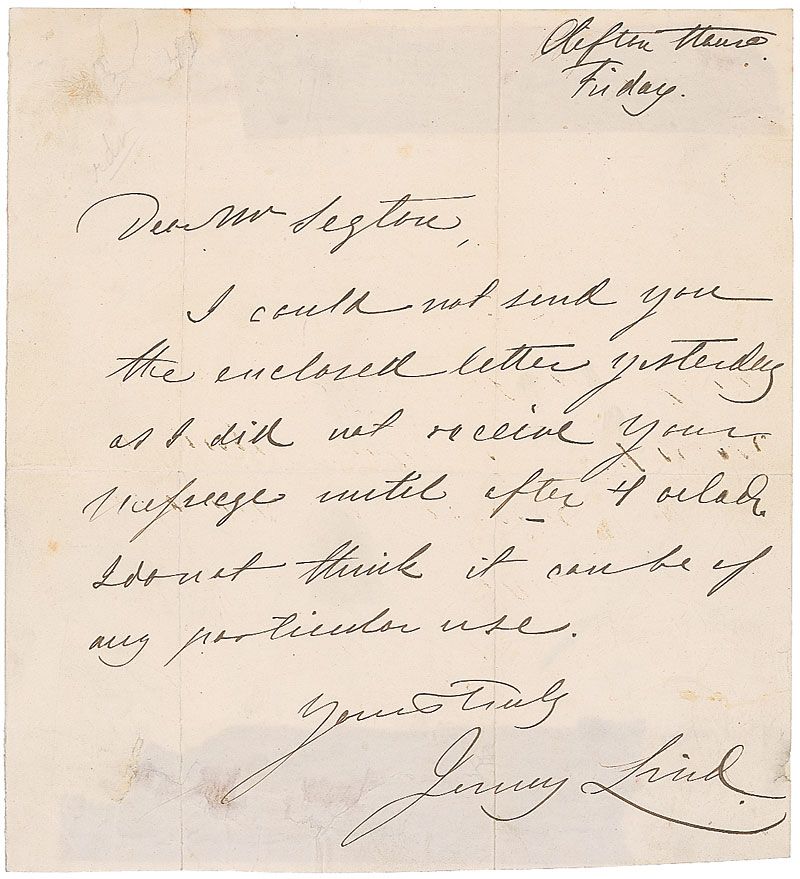 Clifton House.
Friday.
Dear Mr Segton,
I could not send you
the enclosed letter yesterday
as I did not receive your
until after 4 oclock.
I do not think it can be of
any particular use.
Yours truly
Jenny Lind.